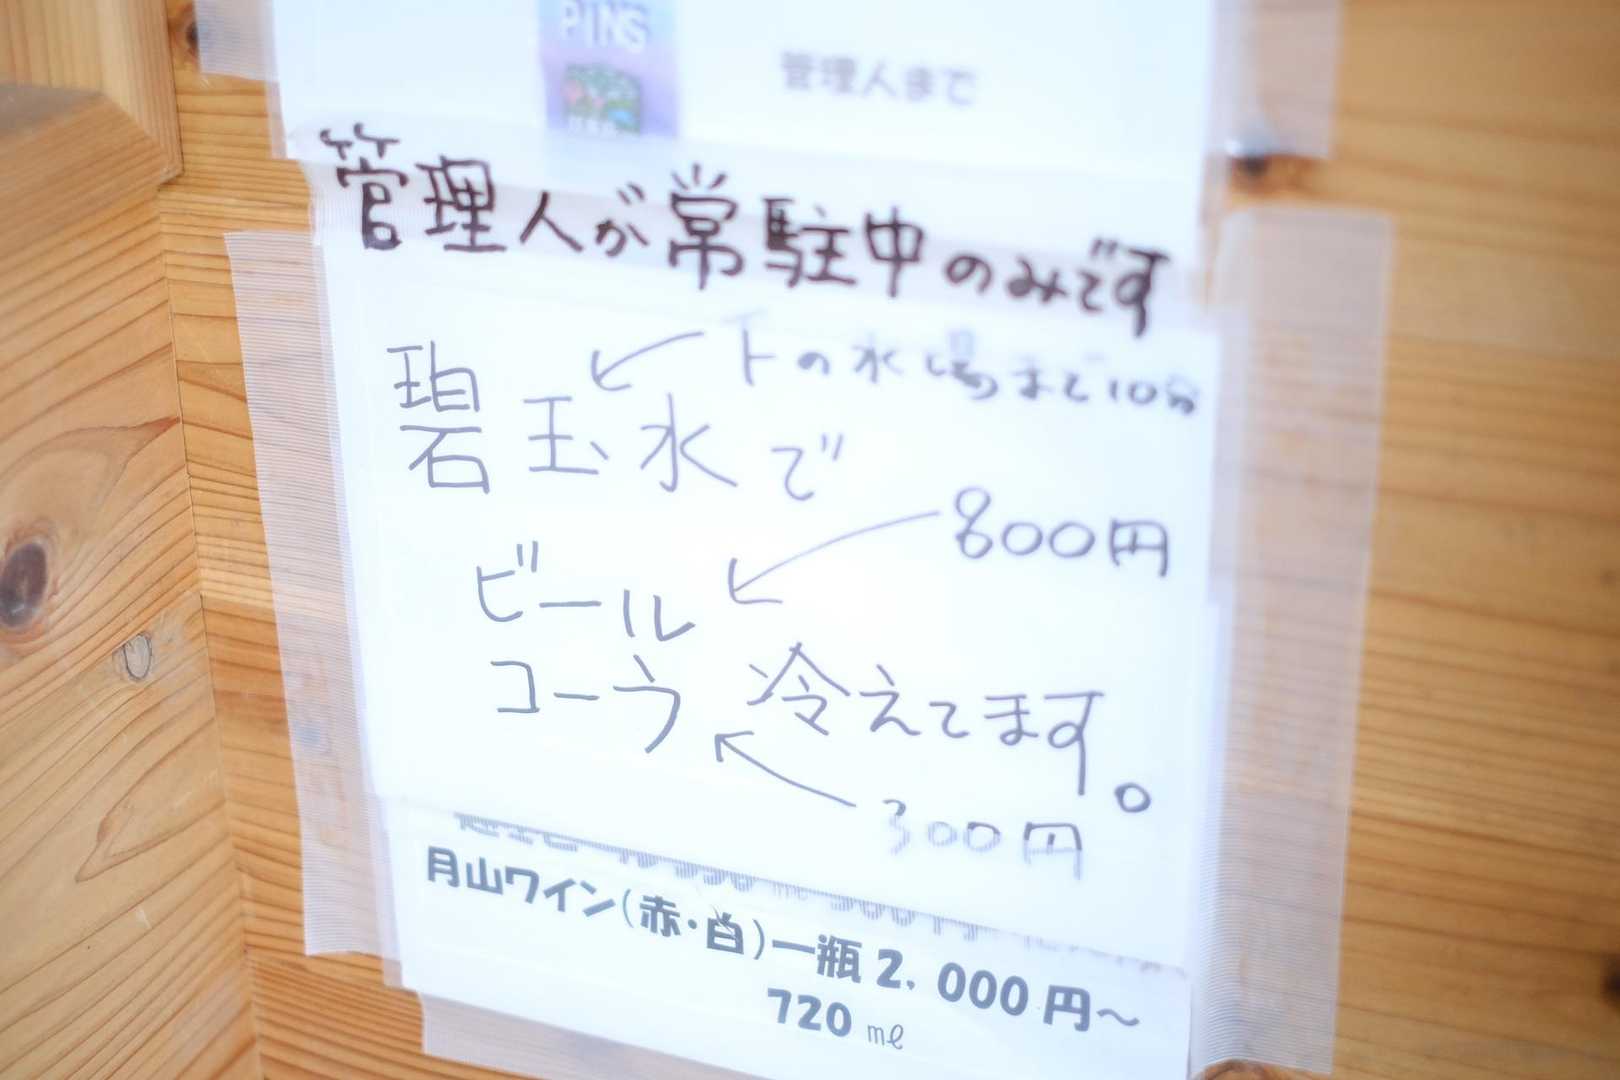 PINS
管理人まで
管理人が常駐中のみです
下の水場まで10分
碧玉水で
800円
ビール
コーラ 冷えてます。
300円
月山ワイン(赤・白)一瓶2,000円～
720㎖